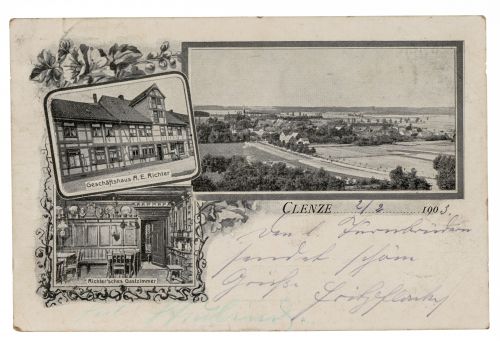 Geschäftshaus A. E. Richter
Richter'sches Gastzimmer
CLENZE 2/2 1903
den l. Turnbrüdern
sendet schöne
Grüße